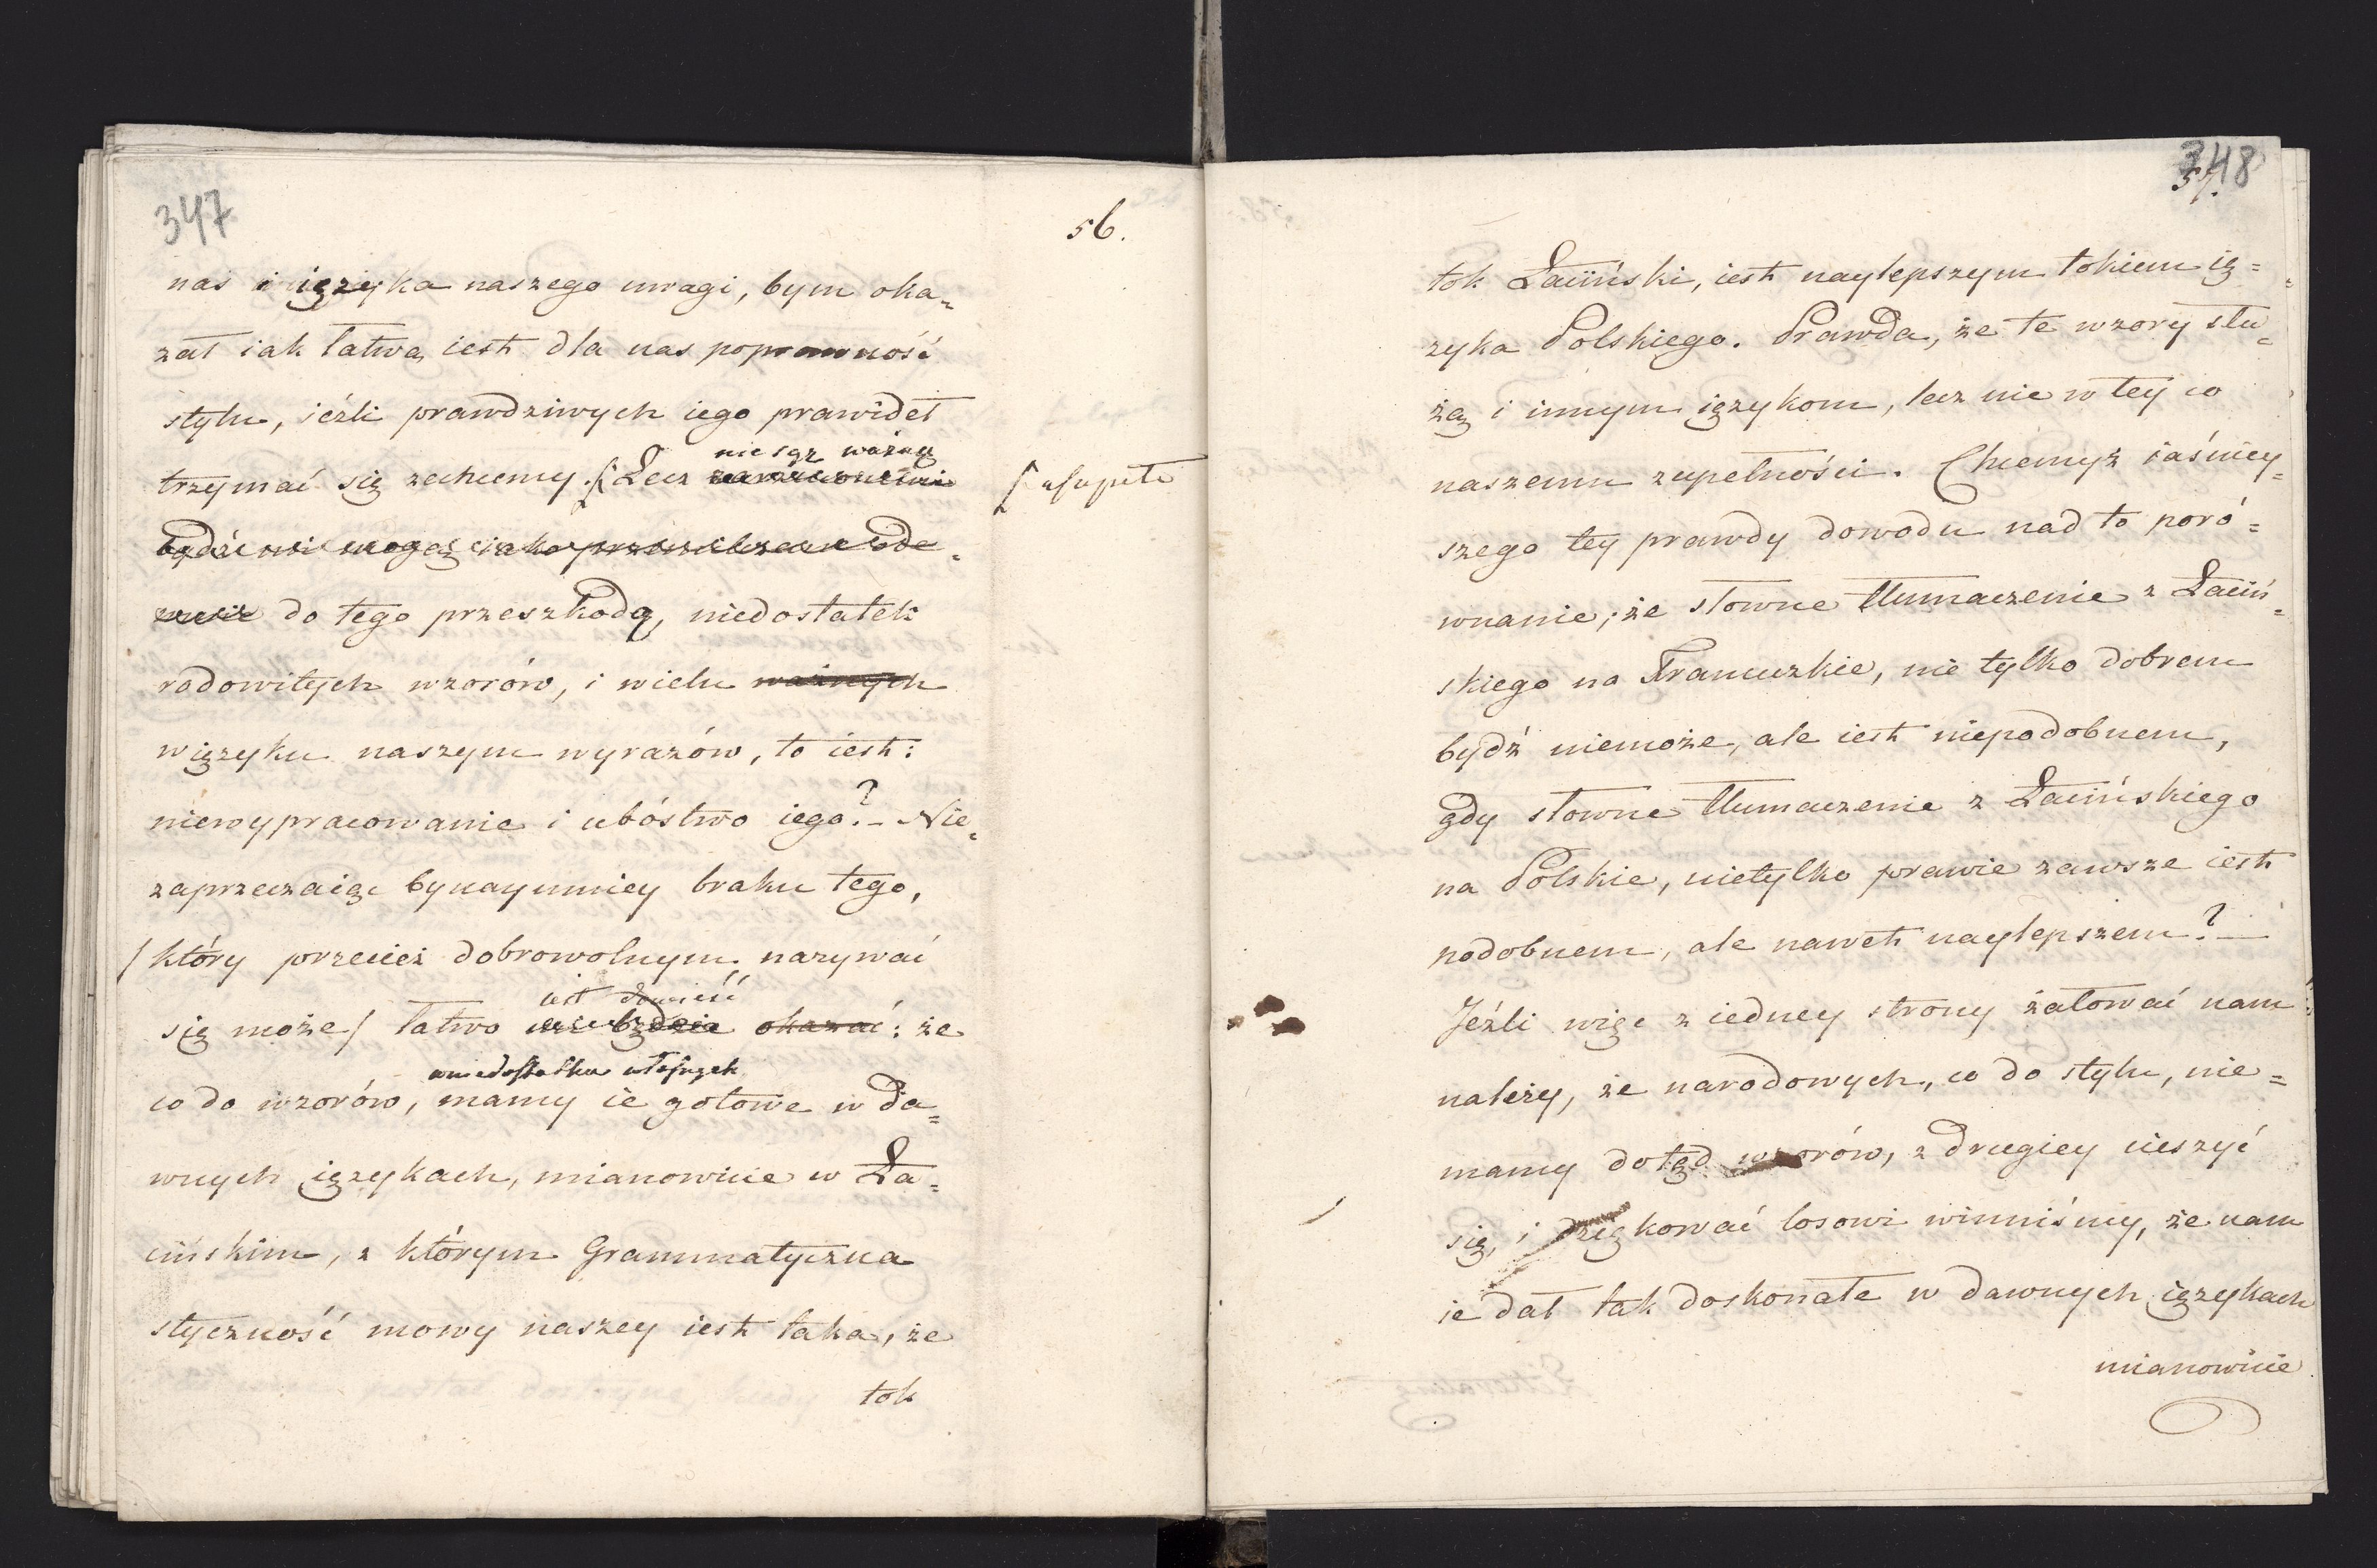 347
56.
nas i ięzyka naszego uwagi, bym oka=
zał iak łatwą iest dla nas poprawność
stylu, ieźli prawdziwych iego prawideł
nie są ważną
trzymać się zechcemy. Lecz
bydź nie mogą iako
do tego przeszkodą, niedostatek
rodowitych wzorów, i wielu ważnych
w ięzyku naszym wyrazów, to iest:
niewypracowanie i ubóstwo iego? – Nie=
zaprzeczaiąc bynaymniey braku tego,
/ który przecież dobrowolnym nazywać
iest dowieść
się może / łatwo będzie okazać: że
w niedostatku własnych
co do wzorów, mamy ie gotowe w da=
wnych ięzykach, mianowicie w Ła=
cińskim, z którym Grammatyczna
styczność mowy naszey iest taka, że
tok
348
57.
tok Łaciński, iest naylepszym tokiem ię=
zyka Polskiego. Prawda, że te wzory słu=
żą i innym ięzykom, lecz nie w tey co
naszemu zupełności. Chcemyż iaśniey=
szego tey prawdy dowodu nad to poró=
wnanie; że słowne tłumaczenie z Łaciń=
skiego na Francuzkie, nie tylko dobrem
bydź niemoże, ale iest niepodobnem,
gdy słowne tłumaczenie z Łacińskiego
na Polskie, nietylko prawie zawsze iest
podobnem, ale nawet naylepszem? –
Jeźli więc z iedney strony żałować nam
należy, że narodowych, co do stylu, nie=
mamy dotąd wzorów, z drugiey cieszyć
się, i dziękować losowi winniśmy, że nam
ie dał tak doskonałe w dawnych ięzykach
mianowicie